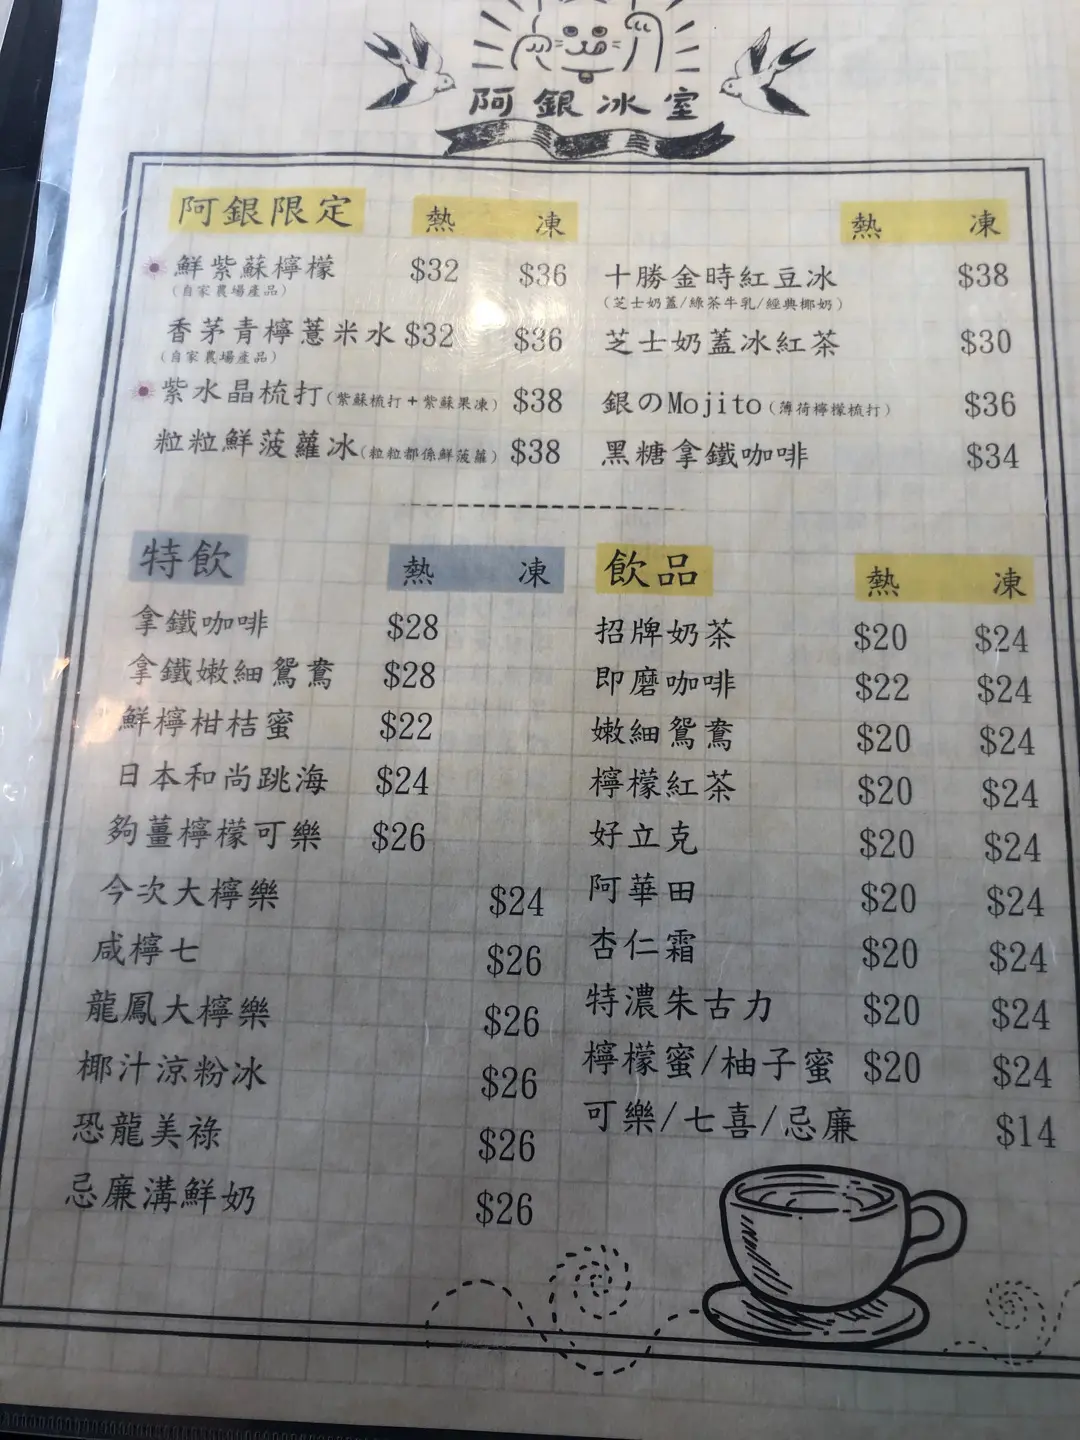 阿銀冰室
阿銀限定 熱 凍
鮮紫蘇檸檬 $32 $36
(自家農場產品)
香茅青檸薏米水 $32 $36
(自家農場產品)
紫水晶梳打(紫蘇梳打+紫蘇果凍) $38
粒粒鮮菠蘿冰(粒粒都係鮮菠蘿) $38
熱 凍
十勝金時紅豆冰 $38
(芝士奶蓋/綠茶牛乳/經典椰奶)
芝士奶蓋冰紅茶 $30
銀のMojito(薄荷檸檬梳打) $36
黑糖拿鐵咖啡 $34
特飲 熱 凍
拿鐵咖啡 $28
拿鐵嫩細鴛鴦 $28
鮮檸柑桔蜜 $22
日本和尚跳海 $24
夠薑檸檬可樂 $26
今次大檸樂 $24
咸檸七 $26
龍鳳大檸樂 $26
椰汁涼粉冰 $26
恐龍美祿 $26
忌廉溝鮮奶 $26
飲品 熱 凍
招牌奶茶 $20 $24
即磨咖啡 $22 $24
嫩細鴛鴦 $20 $24
檸檬紅茶 $20 $24
好立克 $20 $24
阿華田 $20 $24
杏仁霜 $20 $24
特濃朱古力 $20 $24
檸檬蜜/柚子蜜 $20 $24
可樂/七喜/忌廉 $14